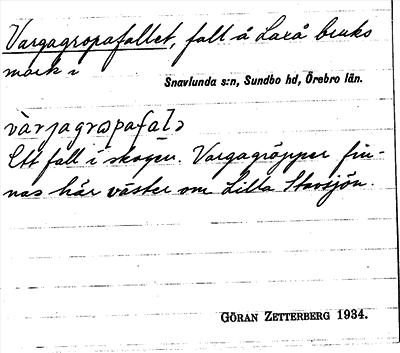 Vargagropafallet, fall å Laxå bruks
mark i
Snavlunda s:n, Sundbo hd, Örebro län.
Ett fall i skogen. Vargagröpper fin-
nas här väster om Lilla Stavsjön.
GÖRAN ZETTERBERG 1934.